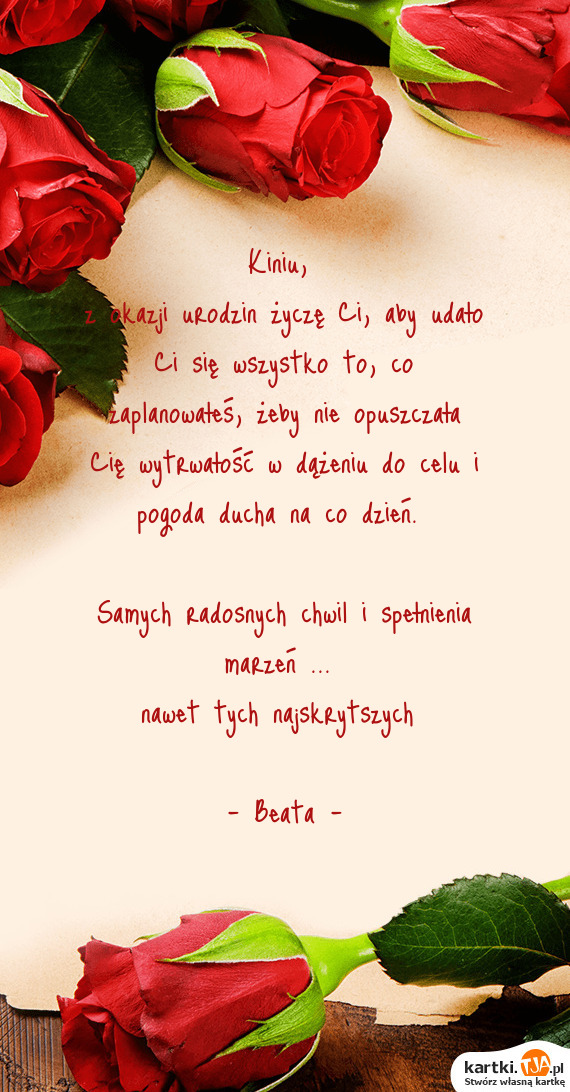 Kiniu,
z okazji urodzin życzę Ci, aby udało
Ci się wszystko to, co
zaplanowałeś, żeby nie opuszczała
Cię wytrwałość w dążeniu do celu i
pogoda ducha na co dzień.
Samych radosnych chwil i spełnienia
marzeń ...
nawet tych najskrytszych
- Beata -
kartki.TJA.pl
Stwórz własną kartkę